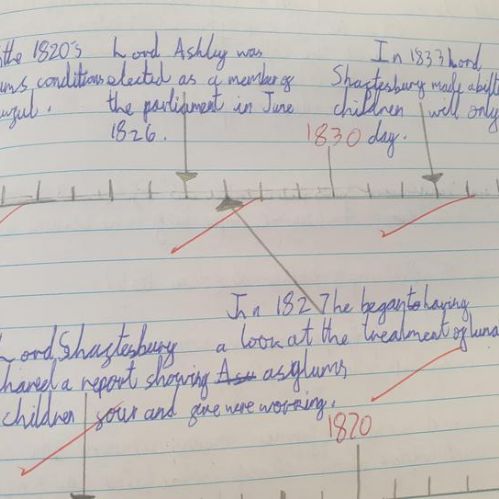 the 1820's
ums conditions
Lord Ashley was
elected as a member of
the parliament in June
1826.
In 1833 Lord
Shaftesbury made a bill
children will only
day.
1830
In 1827 he began to having
a look at the treatment of luna
Lord Shaftesbury
shared a report showing asylums
children four and five were working.
1870